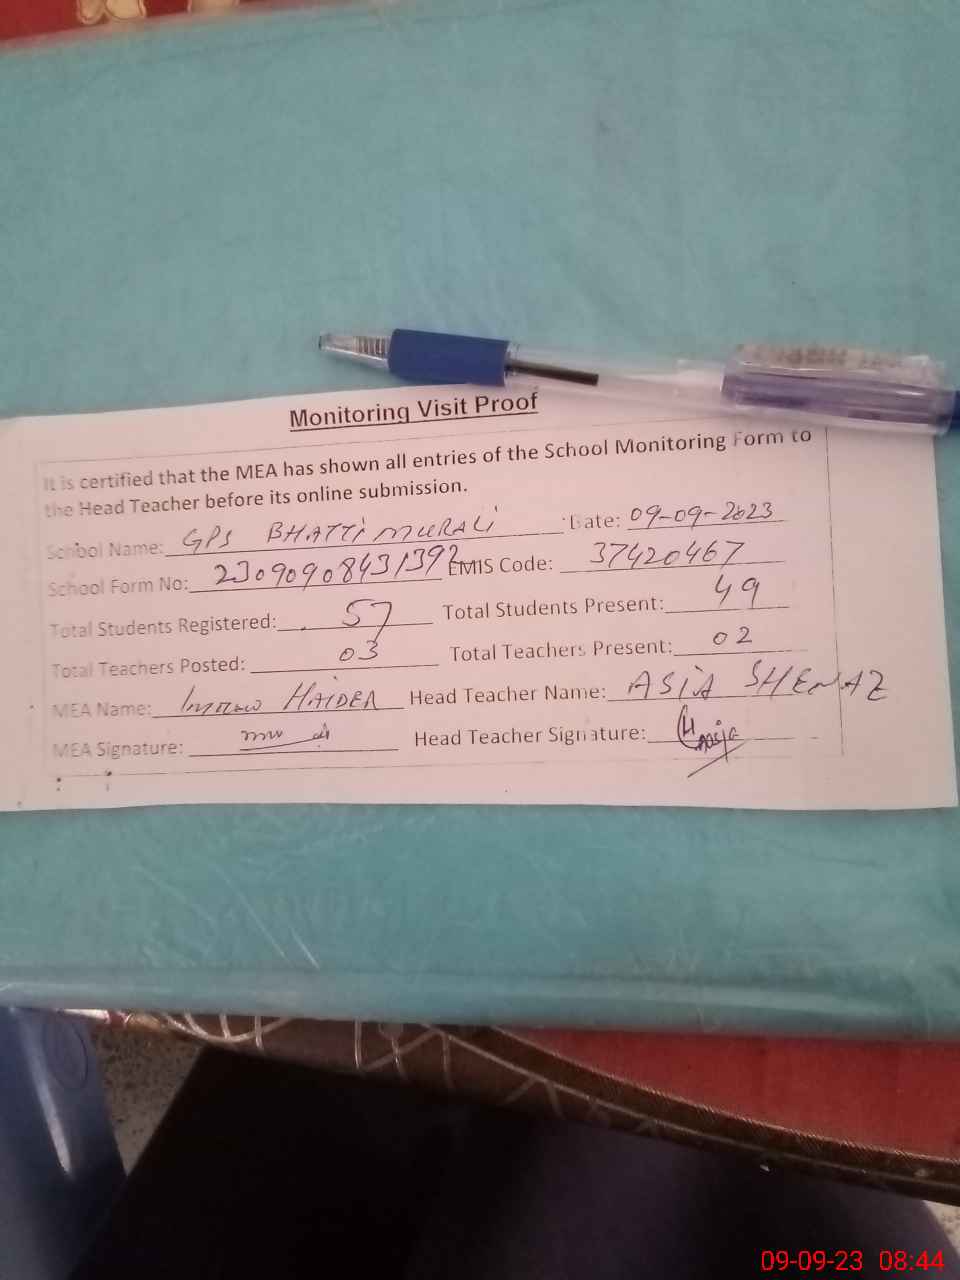 Monitoring Visit Proof
It is certified that the MEA has shown all entries of the School Monitoring Form to
the Head Teacher before its online submission.
School Name: GPS BHATTI MURALI Date: 09-09-2023
School Form No: 23090908431392 EMIS Code: 37420467
Total Students Registered: 57 Total Students Present: 49
Total Teachers Posted: 03 Total Teachers Present: 02
MEA Name: HAIDER Head Teacher Name: ASIA SHENAZ
MEA Signature: Head Teacher Signature:
09-09-23 08:44